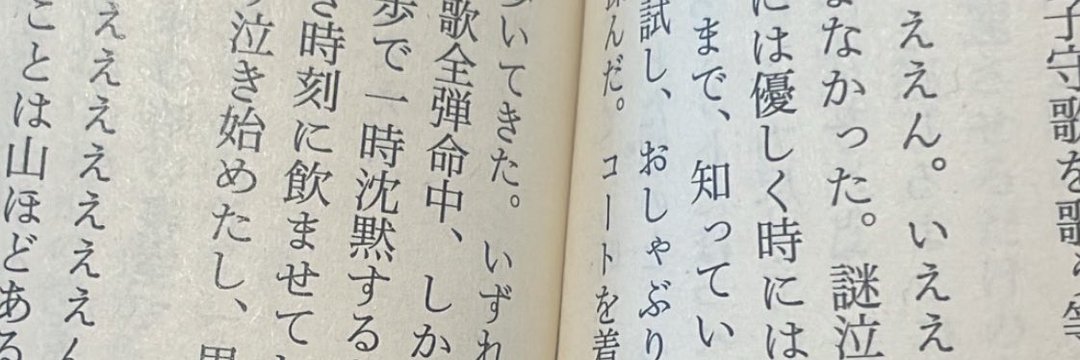 子守歌を歌う等
ええん。いええ
なかった。謎泣
には優しく時には
まで、知ってい
試し、おしゃぶり
んだ。コートを着
いてきた。いずれ
歌全弾命中、しか
歩で一時沈黙する
時刻に飲ませて
泣き始めたし、
ええええええん
ことは山ほどある